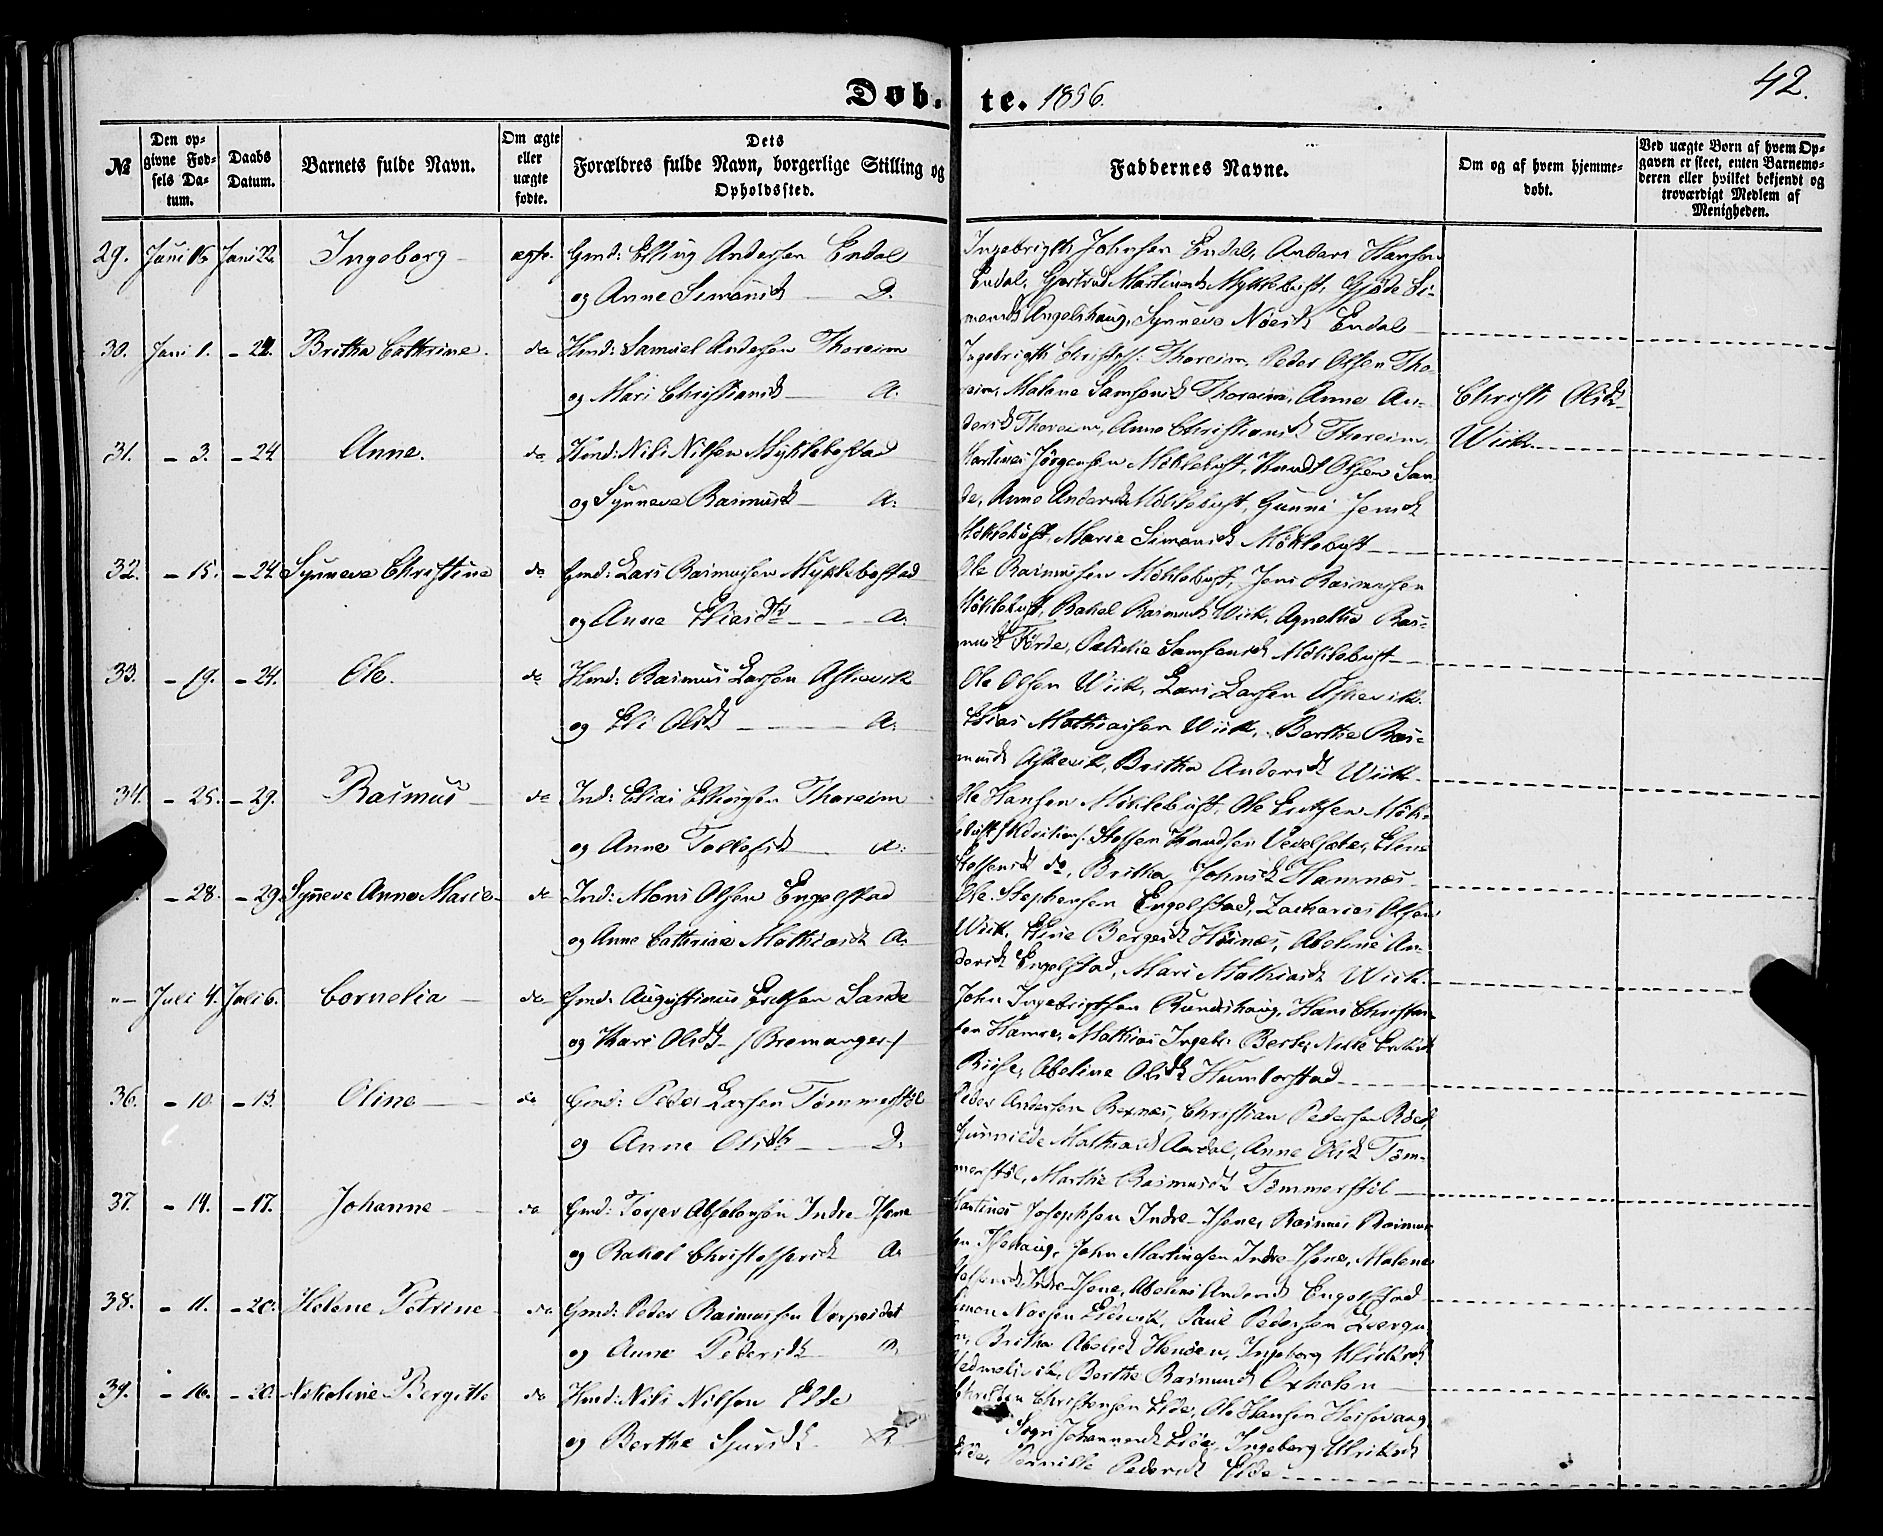 Døb. te. 1856.
42.
№
Den op-
givne Fød-
sels Da-
tum.
Daabs
Datum.
Barnets fulde Navn.
Om ægte
eller
uægte
fødte.
Dets
Forældres fulde Navn, borgerlige Stilling og
Opholdssted.
Faddernes Navne.
Om og af hvem hjemme-
døbt.
Ved uægte Børn af hvem Op-
gaven er skeet, enten Barnemo-
deren eller hvilket bekjendt og
troværdigt Medlem af
Menigheden.
29. Juni Juni 22. Ingeborg ægte. Gmd: Elling Andersen Endal
og Anne Simonsd D.
Ingebrigth Johnsen Endal, Anders Hansen
Endal, Gjertrud Martinusd Myklebust, Gjøde Si-
monsd Angelshaug, Synneve Endal
30. Juni 1. - 24. Britha Cathrine. do Hmd: Samuel Andersen Thoreim
og Mari Christiansd A.
Ingebrigth Christoff: Thoreim, Peder Olsen Tho-
reim, Malene Samsonsd Thoreim, Anne An-
dersd Thoreim, Anne Christiansd Thoreim.
Christi Olsd
Wiik.
31. - 3. - 24. Anne. do Hmd: Nils Nilsen Myklebostad
og Synneve Rasmusd A:
Martines Jørgensen Möklebust, Knudt Olsen San-
de, Anne Andersd Möklebust, Gunni Jensd
Möklebust, Marie Simonsd Möklebust
32. - 15. - 24. Synneve Christine do Gmd: Lars Rasmusen Myklebostad
og Anne Eliasdtr A:
Ole Rasmusen Möklebust, Jens Rasmusen
Möklebust, Rakel Rasmusd Wiik, Agnethe Ras-
musd Förde, Samsonsd Möklebust
33. - 19. - 24. Ole. do Hmd: Rasmus Larsen Askevik
og Eli Olsd A:
Ole Olsen Wiik, Lars Larsen Askevik.
Elias Mathiassen Wiik, Berthe Ras-
musd Askevik, Britha Andersd Wiik
34. - 25. - 29. Rasmus do Ind: Elias Ellingsen Thoreim
og Anne Tollefsd A:
Ole Hansen Möklebust, Ole Eriksen Mök-
lebust, Steffen Knudsen Vedelsæter, Eline
Steffensd do, Britha Johnsd Hamnæs
- 28. - 29. Synneve Anne Marie do Ind: Mons Olsen Engelstad
og Anne Cathrine Mathiasd A.
Ole Stephensen Engelstad, Zacharias Olsen
Wiik, Eline Bergesd Höinæs, Abeline An-
dersd Engelstad, Mari Mathiasd Wiik.
"- Juli 4. Juli 6. Cornelia do Gmd: Augustinus Eriksen Sande
og Kari Olsd (Bremanger)
John Ingebrigtsen Rundshaug, Hans Christen-
sen Hamre, Mathias Ingebr: Berle, Eriksd
Abeline Olsd Humborstad
36. - 10. - 13. Oline do Gmd: Peder Larsen Tömmerstöl
og Anne Olsdtr D.
Peder Andersen Rexnæs, Christian Pedersen
Gunnilde Mathiasd Aardal, Anne Olsd Töm-
merstöl, Marthe Rasmusd Tömmerstöl
37. - 14. - 17. Johanne do Gmd: Torger Absalonsen Indre-Hyene
og Rakel Christoffersd A.
Martines Josephsen Indre-Hyene, Rasmus Rasmus-
John Martinesen Indre Hyene, Malene
Indre-Hyene, Abelone Andersd Engelstad
38. - 11. - 20. Helene Petrine do Gmd: Peder Rasmusen Vorpeidet
og Anne Pedersd
Simon Eldevik, Paul Pedersen
Britha Abelsd Henden, Ingeborg
Berthe Rasmusd Oxholen
39. - 16. - 20. Nikoline Bergitte do Hmd: Nils Nilsen Elde
og Berthe Sjursd
Christen Christensen Elde, Ole Hansen
Johannesd Elde, Ingeborg Ulriksd
Elde, Pernille Pedersd Elde